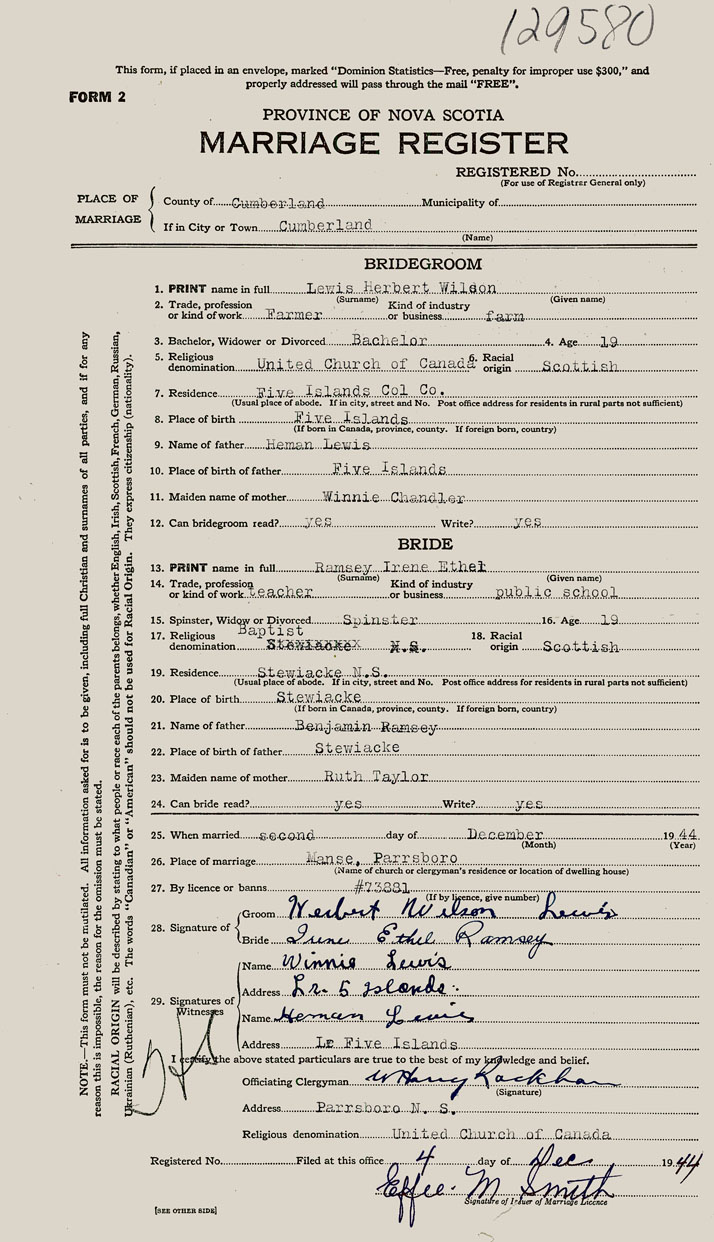 129580
This form, if placed in an envelope, marked "Dominion Statistics—Free, penalty for improper use $300," and
properly addressed will pass through the mail "FREE".
FORM 2
PROVINCE OF NOVA SCOTIA
MARRIAGE REGISTER
REGISTERED No.
(For use of Registrar General only)
PLACE OF MARRIAGE
County of Cumberland Municipality of
If in City or Town Cumberland
(Name)
BRIDEGROOM
1. PRINT name in full Lewis Herbert Wilson
(Surname) (Given name)
2. Trade, profession or kind of work Farmer Kind of industry or business farm
3. Bachelor, Widower or Divorced Bachelor 4. Age 19
5. Religious denomination United Church of Canada 6. Racial origin Scottish
7. Residence Five Islands Col Co.
(Usual place of abode. If in city, street and No. Post office address for residents in rural parts not sufficient)
8. Place of birth Five Islands
(If born in Canada, province, county. If foreign born, country)
9. Name of father Heman Lewis
10. Place of birth of father Five Islands
11. Maiden name of mother Winnie Chandler
12. Can bridegroom read? yes Write? yes
BRIDE
13. PRINT name in full Ramsey Irene Ethel
(Surname) (Given name)
14. Trade, profession or kind of work teacher Kind of industry or business public school
15. Spinster, Widow or Divorced Spinster 16. Age 19
17. Religious denomination Baptist Stewiacke N.S. 18. Racial origin Scottish
19. Residence Stewiacke N.S.
(Usual place of abode. If in city, street and No. Post office address for residents in rural parts not sufficient)
20. Place of birth Stewiacke
(If born in Canada, province, county. If foreign born, country)
21. Name of father Benjamin Ramsey
22. Place of birth of father Stewiacke
23. Maiden name of mother Ruth Taylor
24. Can bride read? yes Write? yes
25. When married second day of December 1944
(Month) (Year)
26. Place of marriage Manse, Parrsboro
(Name of church or clergyman's residence or location of dwelling house)
27. By licence or banns #73881
(If by licence, give number)
28. Signature of
Groom Herbert Wilson Lewis
Bride Irene Ethel Ramsey
29. Signatures of Witnesses
Name Winnie Lewis
Address Lr. 5 Islands.
Name Heman Lewis
Address Lr Five Islands
I certify the above stated particulars are true to the best of my knowledge and belief.
Officiating Clergyman W Harry Rackham
(Signature)
Address Parrsboro N. S.
Religious denomination United Church of Canada
Registered No. Filed at this office 4 day of Dec 1944
Effee M Smith
Signature of Issuer of Marriage Licence
[SEE OTHER SIDE]
NOTE.—This form must not be mutilated. All information asked for is to be given, including full Christian and surnames of all parties, and if for any
reason this is impossible, the reason for the omission must be stated.
RACIAL ORIGIN will be described by stating to what people or race each of the parents belongs, whether English, Irish, Scottish, French, German, Russian,
Ukrainian (Ruthenian), etc. The words "Canadian" or "American" should not be used for Racial Origin. They express citizenship (nationality).